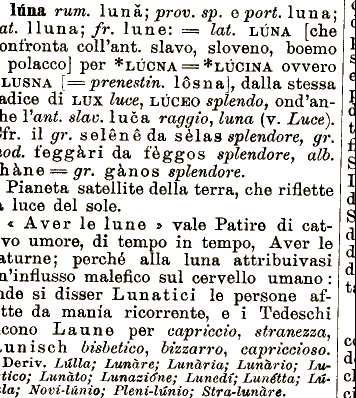 lúna rum. lună; prov. sp. e port. luna;
at. lluna; fr. lune: = lat. LÚNA [che
onfronta coll'ant. slavo, sloveno, boemo
polacco] per *LÚCNA = *LÚCINA ovvero
LUSNA [= prenestin. lôsna], dalla stessa
adice di LUX luce, LÚCEO splendo, ond'an-
he l'ant. slav. luča raggio, luna (v. Luce).
fr. il gr. selênê da sèlas splendore, gr.
od. feggàri da fèggos splendore, alb.
hàne = gr. gànos splendore.
Pianeta satellite della terra, che riflette
a luce del sole.
« Aver le lune » vale Patire di cat-
vo umore, di tempo in tempo, Aver le
aturne; perché alla luna attribuivasi
n'influsso malefico sul cervello umano:
nde si disser Lunatici le persone af-
tte da manía ricorrente, e i Tedeschi
cono Laune per capriccio, stranezza,
unisch bisbetico, bizzarro, capriccioso.
Deriv. Lúlla; Lunàre; Lunària; Lunàrio; Lu-
tico; Lunàto; Lunazióne; Lunedí; Lunétta; Lú-
la; Novi-lúnio; Pleni-lúnio; Stra-lunàre.